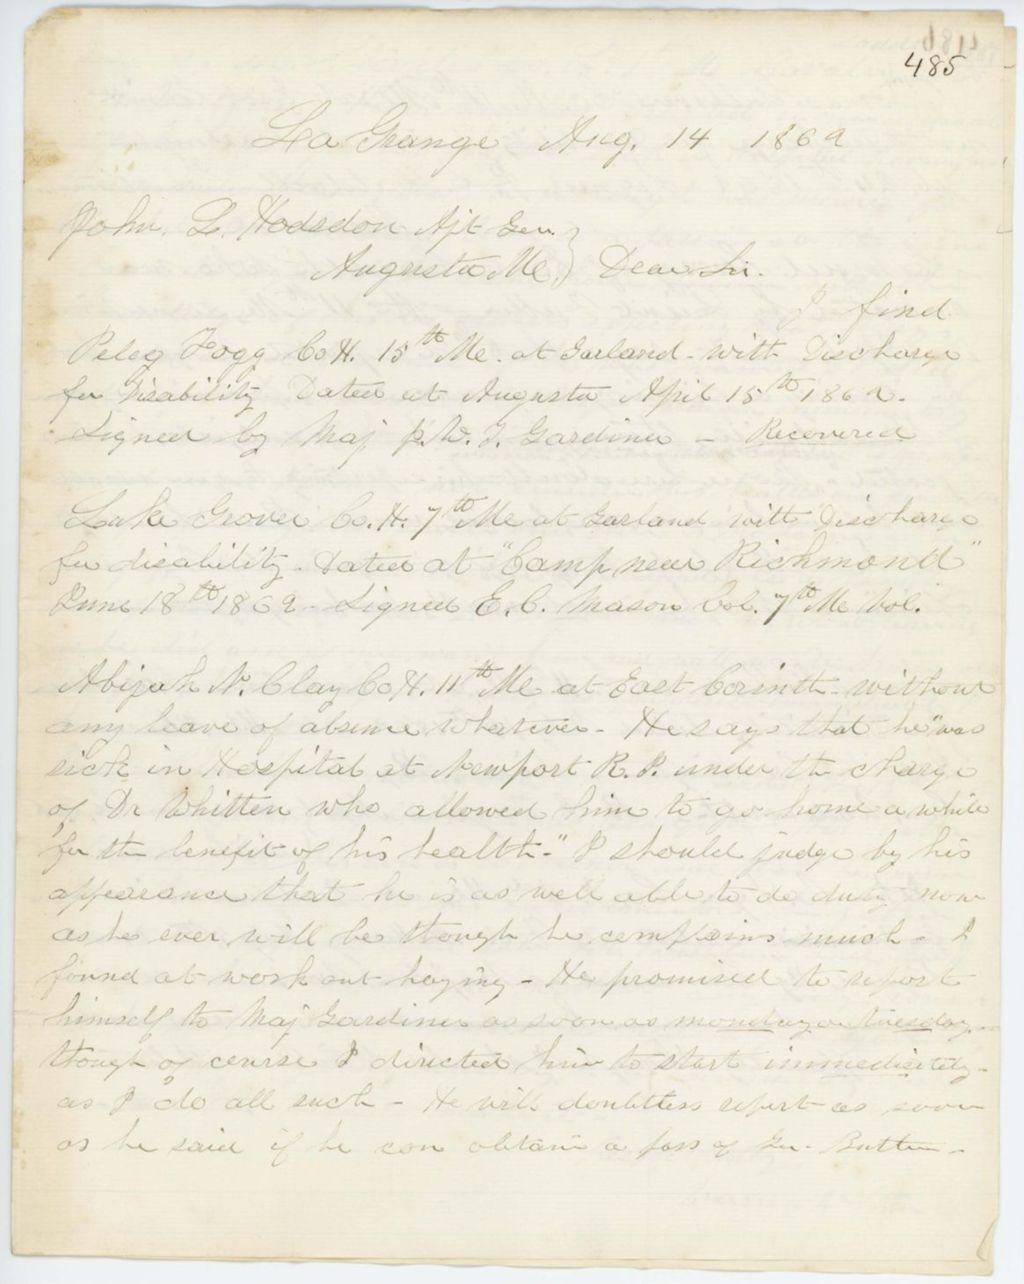 485
La Grange Aug. 14 1862
John. L. Hodsdon Ajt Gen. }
Augusta Me. } Dear Sir.
I find
Peleg Fogg Co H. 15th Me. at Garland - with Discharge
for Disability Dated at Augusta April 15th 1862.
Signed by Maj J. W. T. Gardiner - Recovered
Luke Grover Co. H. 7th Me at Garland with Discharge
for disability. Dated at "Camp near Richmond"
June 18th 1862 - Signed E. C. Mason Col. 7th Me Vol.
Abijah N. Clay Co H. 11th Me at East Corinth - without
any leave of absence whatever - He says that he "was
sick in Hospital at Newport R. I. under the charge
of Dr Whitten who allowed him to go home a while
for the benefit of his health." I should judge by his
appearance that he is as well able to do duty now
as he ever will be though he complains much - I
found at work out haying - He promised to report
himself to Maj Gardiner as soon as monday or Tuesday -
though of course I directed him to start immediately -
as I do all such - He will doubtless report as soon
as he said if he can obtain a pass of Gen - Butler -